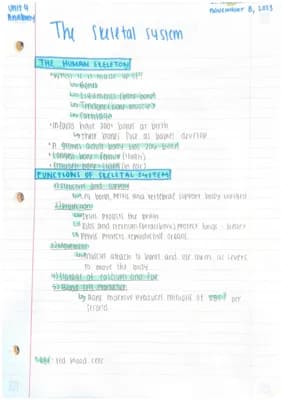 unit 4
Anatomy
november 8, 2023
The skeletal system
THE HUMAN SKELETON
•What is it made up of?
↳Bones
↳Ligaments (bone-bone)
↳Tendons (bone-muscle)
↳Cartilage
•Infants have 300+ bones at birth
↳their bones fuse as babies develop
•A grown adult body has 206 bones
•Longest bone: femur (thigh)
•Smallest bone: (in ear)
FUNCTIONS OF SKELETAL SYSTEM
1) Structure and support
↳ bones, pelvis and vertebrae support body
2) Protection
↳Skull protects the brain
↳Ribs and sternum protect lungs
↳Pelvis protects reproductive organs.
3) Movement
↳Muscles attach to bones and use them as levers
to move the body
4) Storage of calcium and fat
5) Blood cell production
↳Bone marrow produces millions of per
second
red blood cell